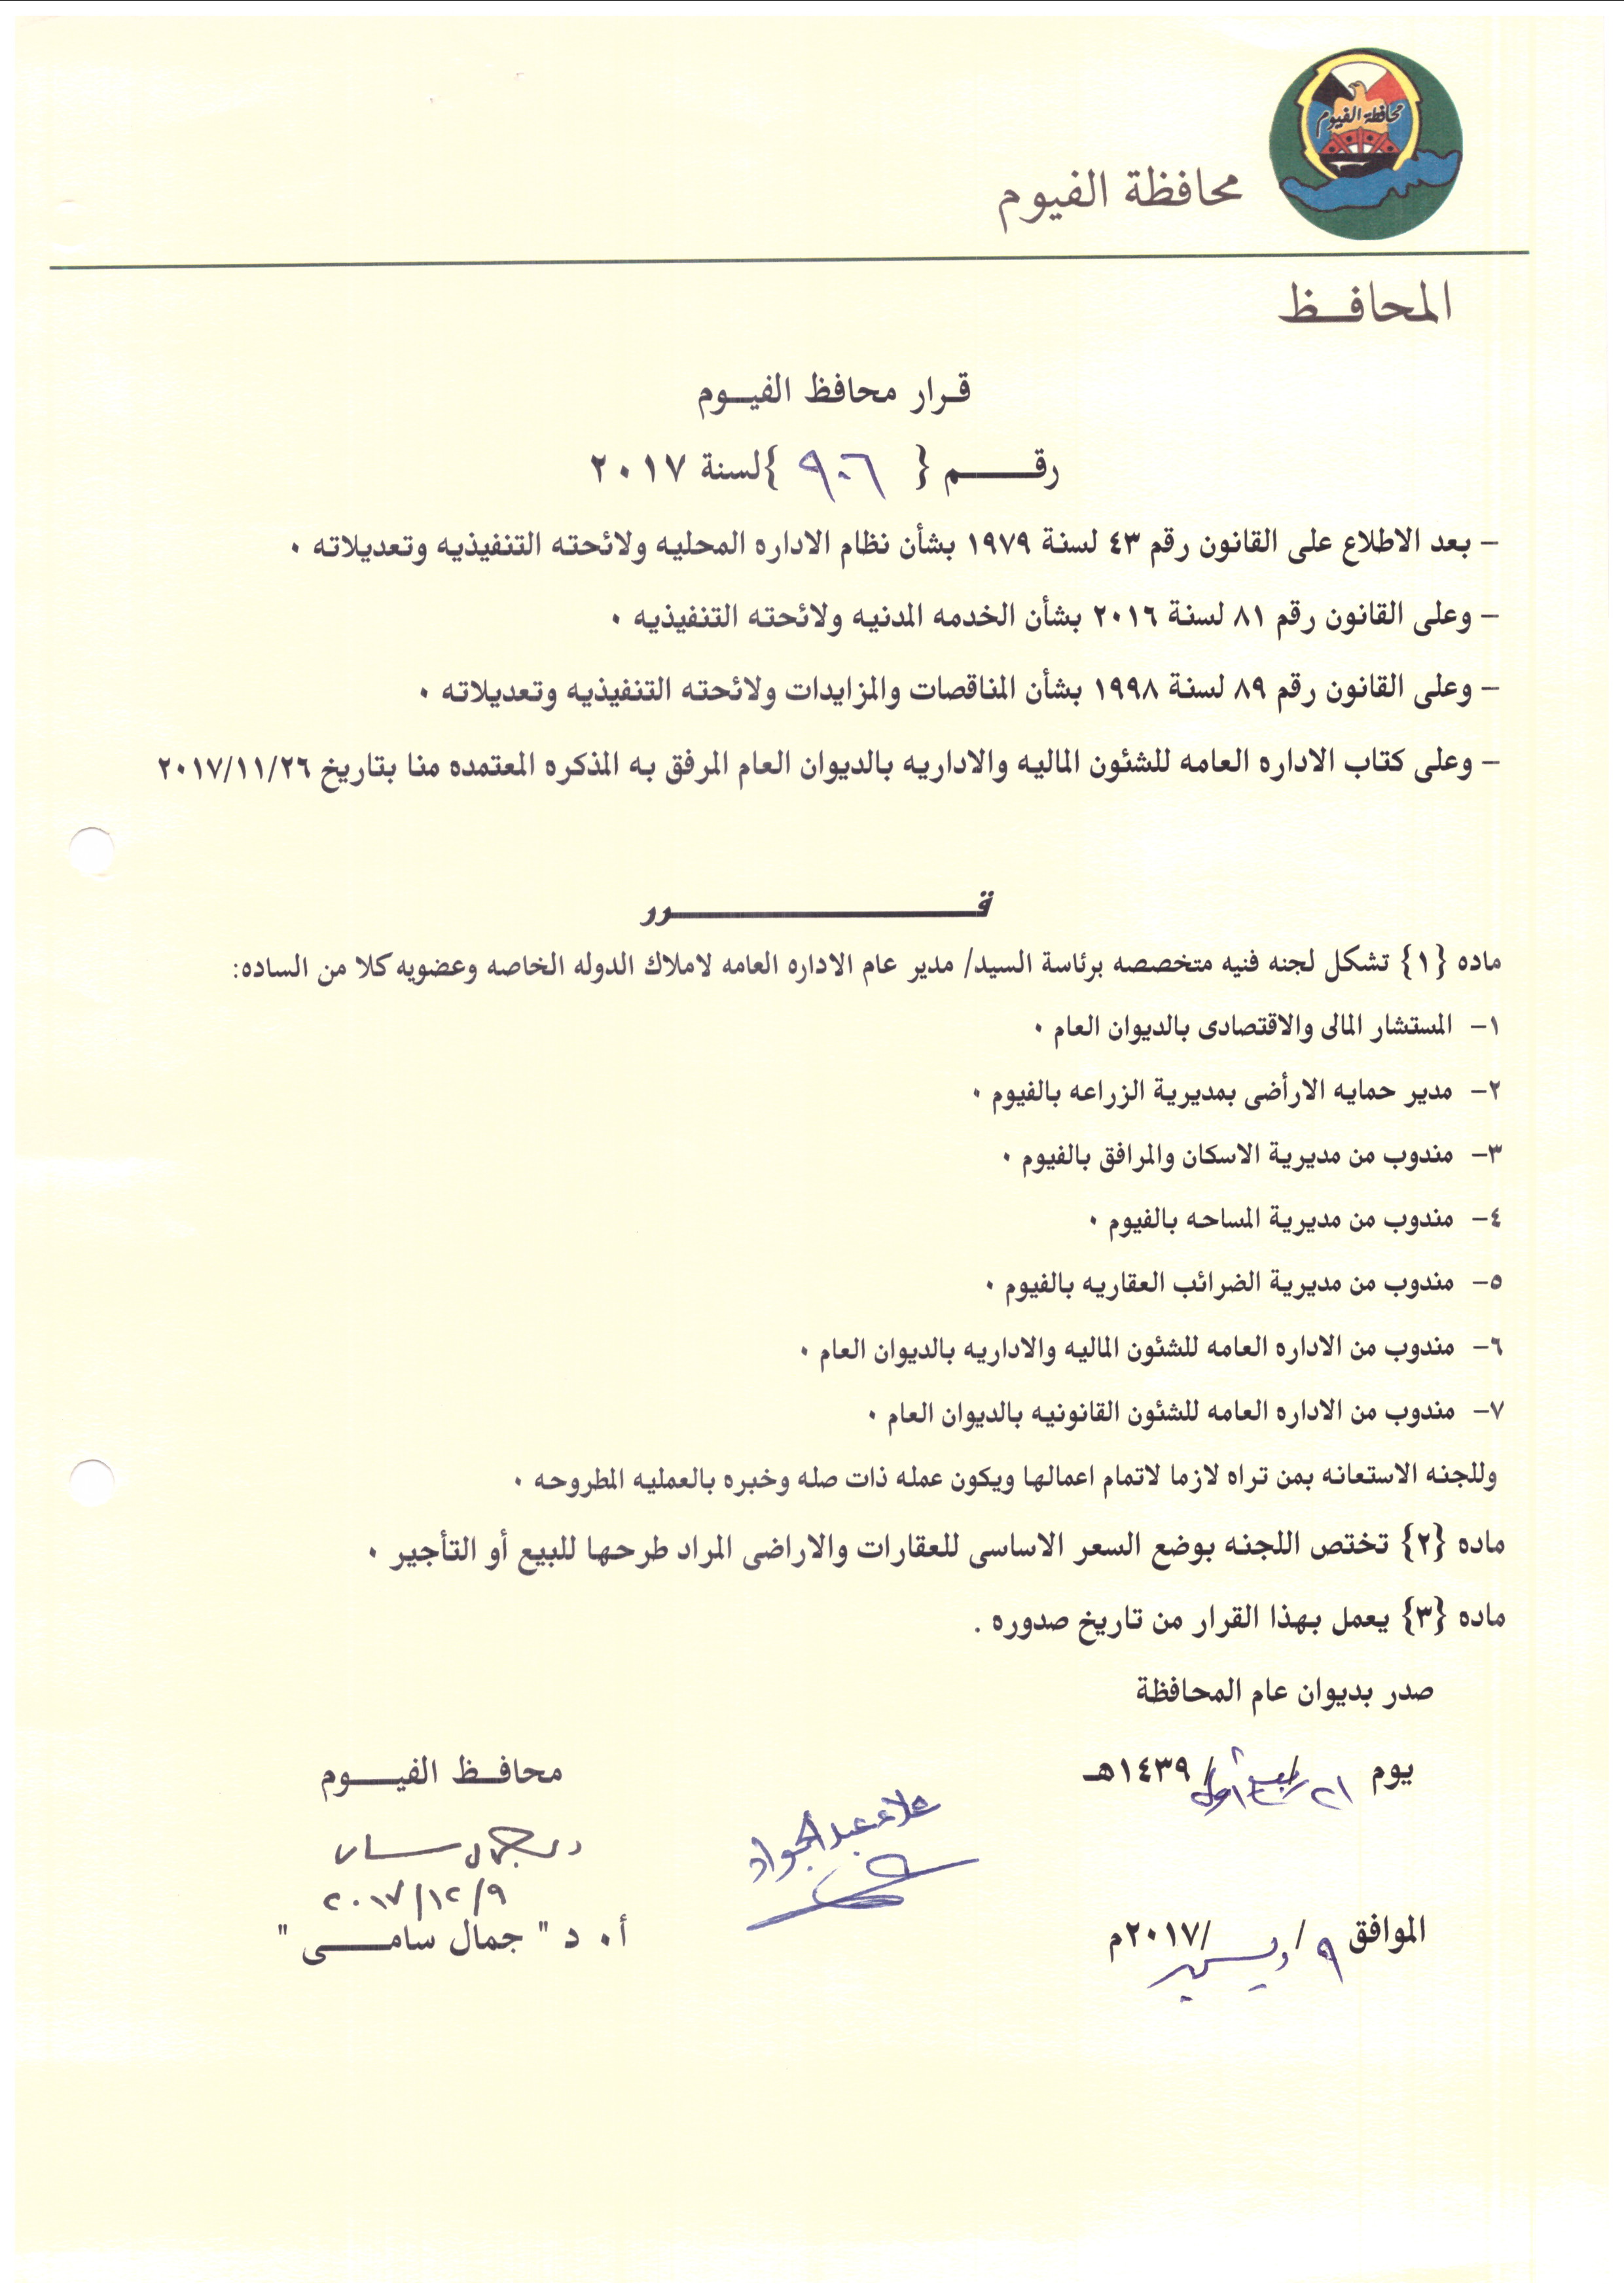 محافظة الفيوم
محافظة الفيوم
المحافـــظ
قـرار محافظ الفيــوم
رقـــــــم { ٩٠٦ }لسنة ٢٠١٧
– بعد الاطلاع على القانون رقم ٤٣ لسنة ١٩٧٩ بشأن نظام الاداره المحليه ولائحته التنفيذيه وتعديلاته ٠
– وعلى القانون رقم ٨١ لسنة ٢٠١٦ بشأن الخدمه المدنيه ولائحته التنفيذيه ٠
– وعلى القانون رقم ٨٩ لسنة ١٩٩٨ بشأن المناقصات والمزايدات ولائحته التنفيذيه وتعديلاته ٠
– وعلى كتاب الاداره العامه للشئون الماليه والاداريه بالديوان العام المرفق به المذكره المعتمده منا بتاريخ ٢٠١٧/١١/٢٦
قــــــــــــــــــــرر
ماده {١} تشكل لجنه فنيه متخصصه برئاسة السيد/ مدير عام الاداره العامه لاملاك الدوله الخاصه وعضويه كلا من الساده:
١- المستشار المالى والاقتصادى بالديوان العام ٠
٢- مدير حمايه الارأضى بمديرية الزراعه بالفيوم ٠
٣- مندوب من مديرية الاسكان والمرافق بالفيوم ٠
٤- مندوب من مديرية المساحه بالفيوم ٠
٥- مندوب من مديرية الضرائب العقاريه بالفيوم ٠
٦- مندوب من الاداره العامه للشئون الماليه والاداريه بالديوان العام ٠
٧- مندوب من الاداره العامه للشئون القانونيه بالديوان العام ٠
وللجنه الاستعانه بمن تراه لازما لاتمام اعمالها ويكون عمله ذات صله وخبره بالعمليه المطروحه ٠
ماده {٢} تختص اللجنه بوضع السعر الاساسى للعقارات والاراضى المراد طرحها للبيع أو التأجير ٠
ماده {٣} يعمل بهذا القرار من تاريخ صدوره .
صدر بديوان عام المحافظة
يوم ٢١/ربيع أول/١٤٣٩هـ
الموافق ٩/ديسمبر/٢٠١٧م
علاء عبد الجواد
محافــظ الفيـــــوم
٢٠١٧/١٢/٩
أ٠ د " جمال سامـــــى "